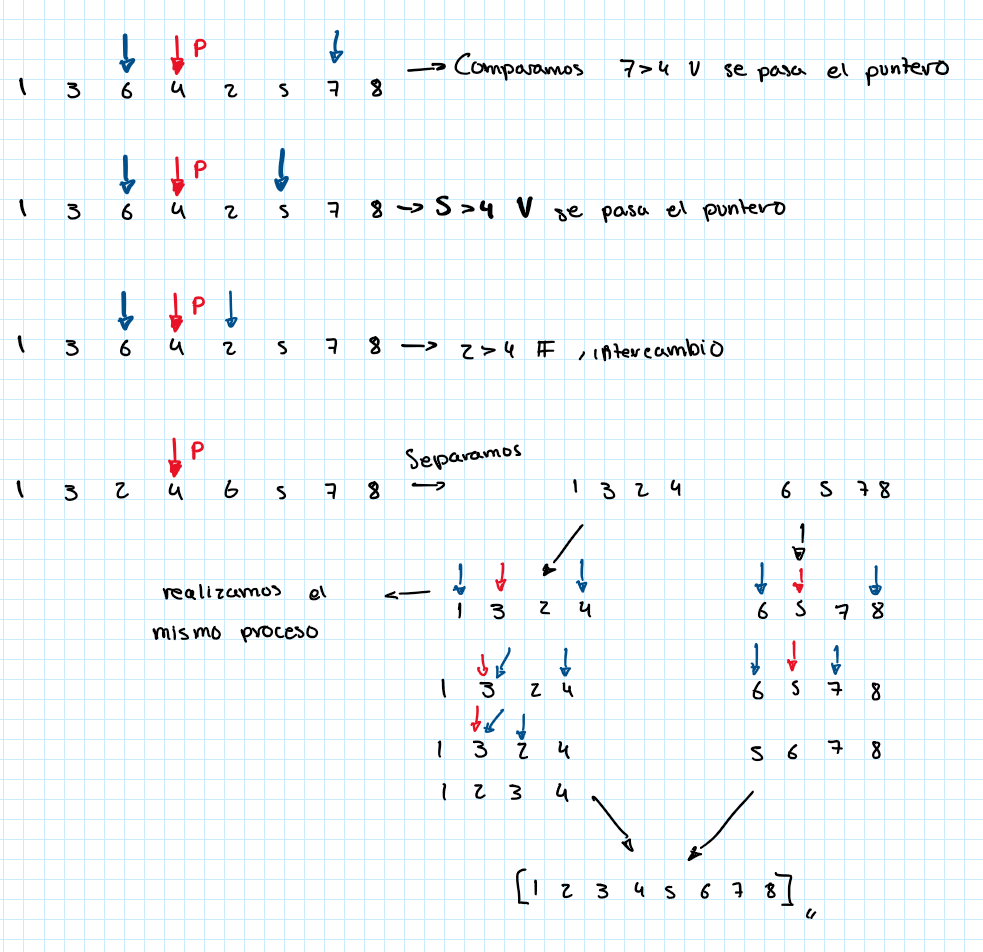 P
1 3 6 4 2 5 7 8 → Comparamos 7>4 V se pasa el puntero
P
1 3 6 4 2 5 7 8 → 5>4 V se pasa el puntero
P
1 3 6 4 2 5 7 8 → 2>4 F, intercambio
P
Separamos
1 3 2 4 6 5 7 8 → 1 3 2 4 6 5 7 8
realizamos el ← 1 3 2 4 6 5 7 8
mismo proceso
1 3 2 4 6 5 7 8
1 3 2 4 5 6 7 8
1 2 3 4
[1 2 3 4 5 6 7 8]